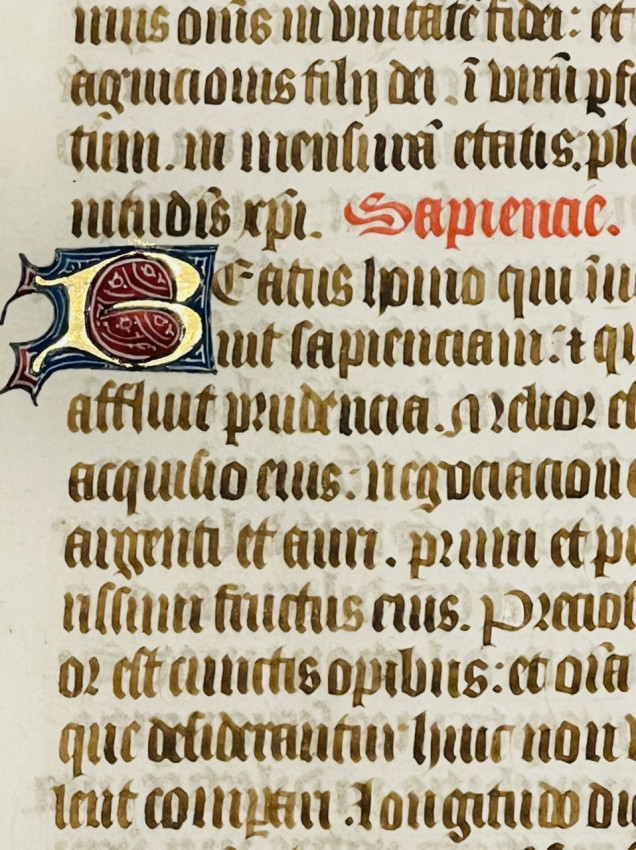 mus om̄s in vnitatē fidei: et
agnicionis filij dei. ī virū pfe
tūm. in mensurā etatis. ple
nitudīs xp̄i. Sapiencie.
BEatus homo qui īu
nit sapienciam: ⁊ qu
affluit prudencia. Melior e
acquisio eius: negociacione
argenti et auri. primi et pu
rissimi fructus eius. Precios
or est cunctis opibus: et oīa
que desiderantur huic non v
lent comꝑari. Longitudo di